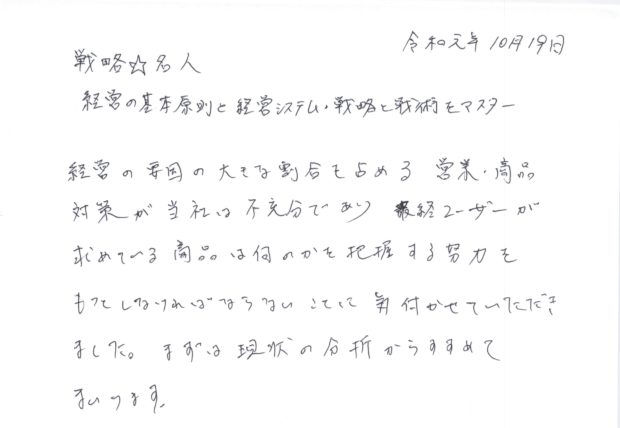 令和元年10月19日
戦略☆名人
経営の基本原則と経営システム・戦略と戦術をマスター
経営の要因の大きな割合を占める 営業・商品
対策が当社は不充分であり 最経ユーザーが
求めている商品は何のかを把握する努力を
もっとしなければならないことに気付かせていただき
ました。まずは現状の分析からすすめて
まいります。